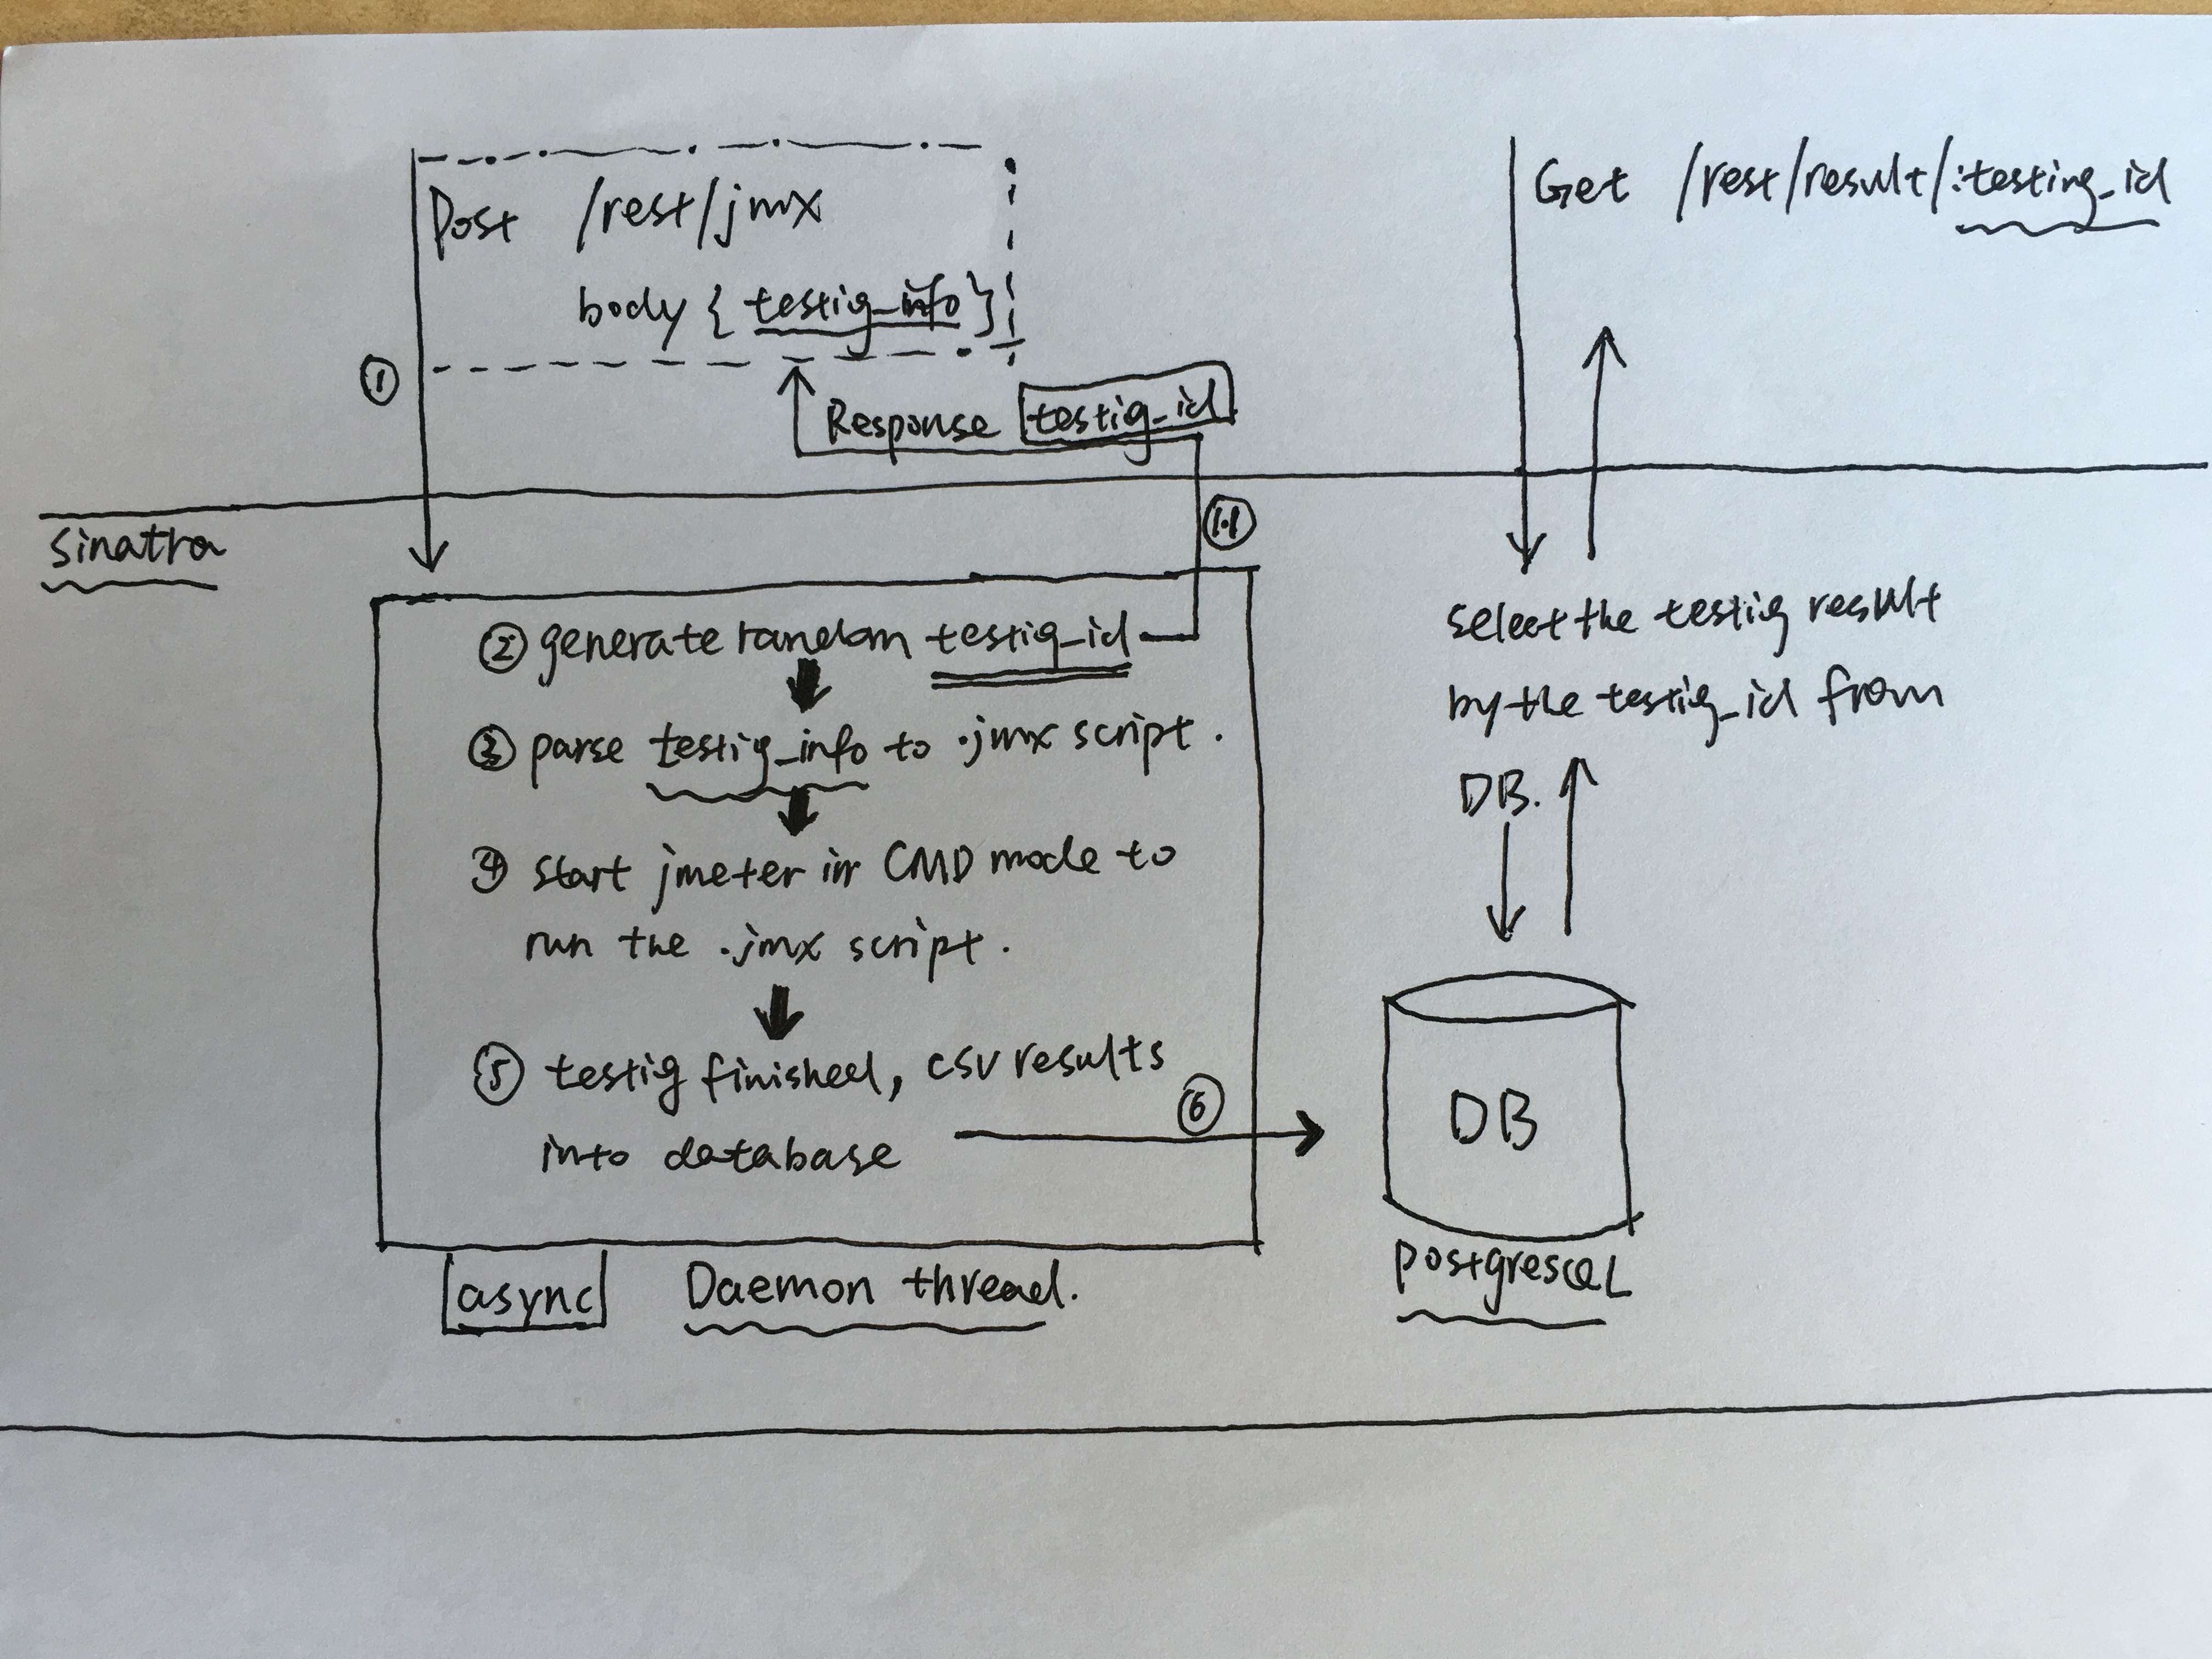 Post /rest/jmx
body { testig_info }
①
Response testig_id
1.1
Sinatra
② generate random testig_id
③ parse testig_info to .jmx script.
④ start jmeter in CMD mode to
run the .jmx script.
⑤ testig finished, csv results
into database
⑥
async Daemon thread.
Get /rest/result/:testing_id
select the testig result
by the testig_id from
DB.
DB
postgresQL